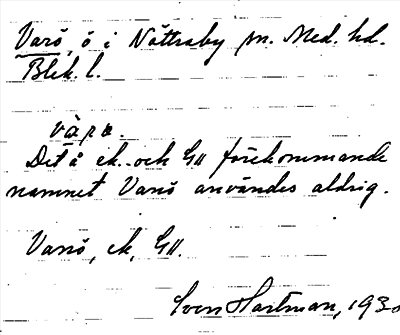 Varö, ö i Nättraby sn. Med. hd.
Blek. l.
Det å ek. och GII förekommande
namnet Varö användes aldrig.
Varö, ek, GII.
Sven Hartman, 1930